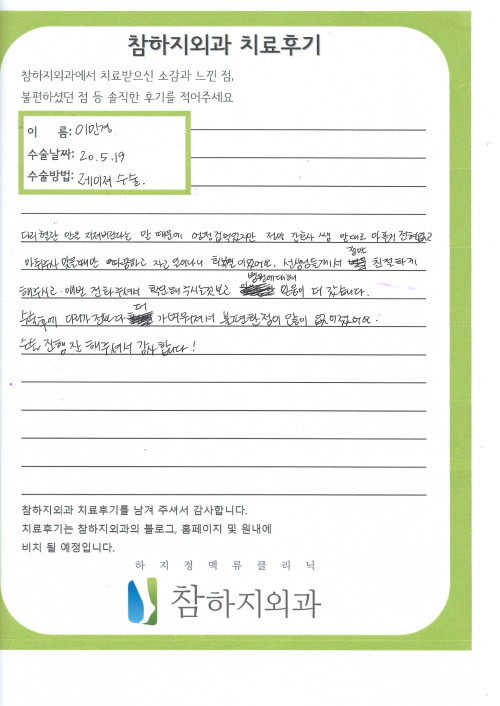 참하지외과 치료후기
참하지외과에서 치료받으신 소감과 느낀 점,
불편하셨던 점 등 솔직한 후기를 적어주세요
이 름: 이민경
수술날짜: 20.5.19
수술방법: 레이저 수술.
다리혈관 안을 지져버린다는 말 때문에 엄청 겁먹었지만 정작 간호사 쌤 말대로 아프지 전혀않고
마취주사 맞을때만 따끔하고 자고 일어나니 회복실 이었어요. 선생님들께서 정말 친절하게
해주시고 매번 전화주셔서 확인해주시는것보고 병원에대해 믿음이 더 갔습니다.
수술후에 다리가 전보다 더 가벼워져서 불편한점이 많이 없어졌어요.
수술 진행 잘 해주셔서 감사합니다!
참하지외과 치료후기를 남겨 주셔서 감사합니다.
치료후기는 참하지외과의 블로그, 홈페이지 및 원내에
비치 될 예정입니다.
하지정맥류클리닉
참하지외과